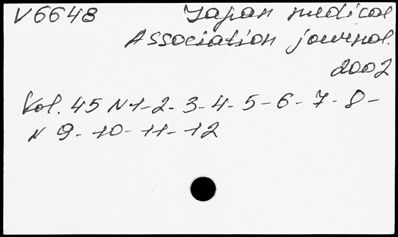 V6648 Japan medical
Association journal.
2002
Vol. 45 N1-2-3-4-5-6-7-8-
N 9-10-11-12